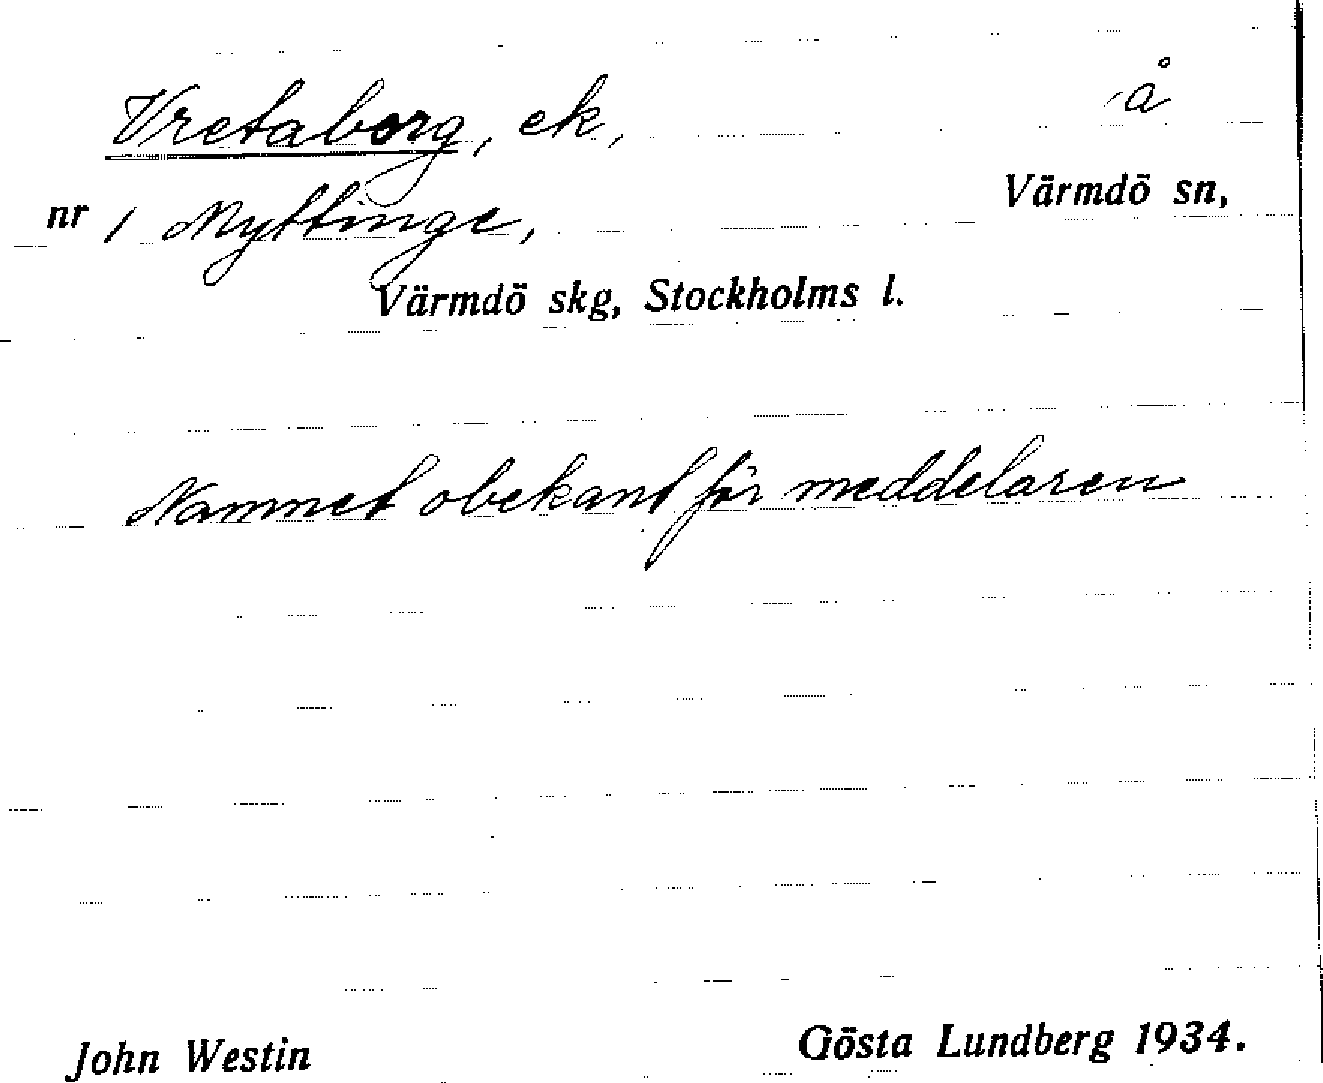 Vretaborg, ek, å
nr 1 Myttinge, Värmdö sn,
Värmdö skg, Stockholms l.
Namnet obekant för meddelaren
John Westin Gösta Lundberg 1934.